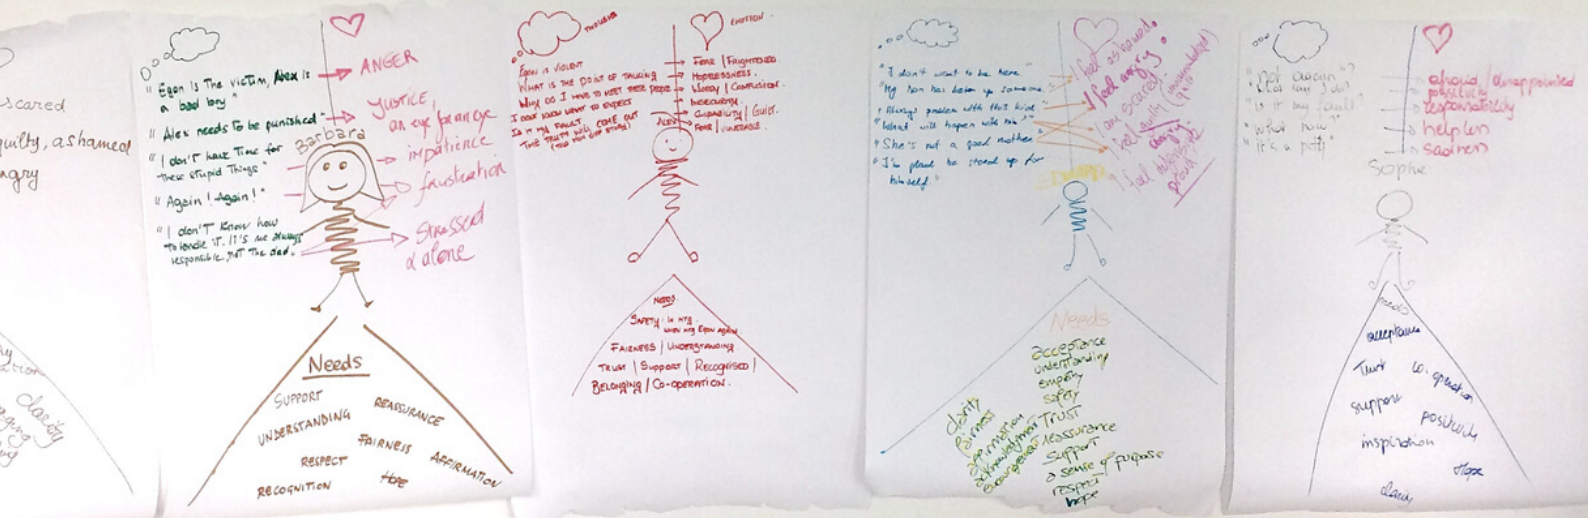 scared
guilty, ashamed
angry
clarity
"Egon is the victim, Alex is
a bad boy"
"Alex needs to be punished"
"I don't have time for
these stupid things"
"Again! Again!"
"I don't know how
to handle it. It's me always
responsible, not the dad.
ANGER
JUSTICE,
an eye for an eye
impatience
frustration
Stressed
& alone
Barbara
Needs
SUPPORT
UNDERSTANDING
RESPECT
RECOGNITION
REASSURANCE
FAIRNESS
AFFIRMATION
HOPE
THOUGHTS
EMOTION
EGON IS VIOLENT
WHAT IS THE POINT OF TALKING
WHY DO I HAVE TO MEET THESE PEOPLE
I DON'T KNOW WHAT TO EXPECT
IS IT MY FAULT
THE TRUTH WILL COME OUT
FEAR / FRIGHTENED.
HOPELESSNESS.
WORRY / CONFUSION.
INSECURITY.
CULPABILITY / GUILT.
FEAR / VULNERABLE.
ALEX
NEEDS
SAFETY - IN MTG.
WHEN MTG EGON AGAIN.
FAIRNESS / UNDERSTANDING
TRUST / SUPPORT / RECOGNISED /
BELONGING / CO-OPERATION.
"I don't want to be here"
"My son has beaten up someone
"Always problem with this kid"
"What will happen with me"
"She's not a good mother"
"I'm proud he stood up for
himself"
I feel ashamed.
I feel angry.
I am scared!
I feel guilty
angry
I feel
proud
EDWARD
Needs
acceptance
understanding
empathy
safety
TRUST
reassurance
support
a sense of purpose
respect
hope
clarity
fairness
affirmation
acknowledgment
encouragement
"Not again"?
"What can I do?
"Is it my fault?
"What now"
"It's a pity"
afraid / disappointed
responsability
helpless
sadness
Sophie
needs
acceptance
Trust
co-operation
support
positivity
inspiration
Hope
clarity